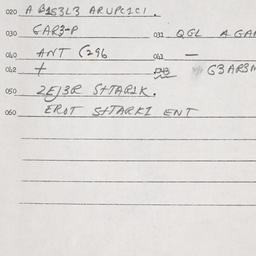 020 A B1S3L3 ARUPC1C1.
030 GAR3-P 031 QGL A GAR
040 ANT C296 041 —
042 + 043 G3AR3M
050 2EJ3R S+TAR1K.
060 EROT S+TARK1 ENT